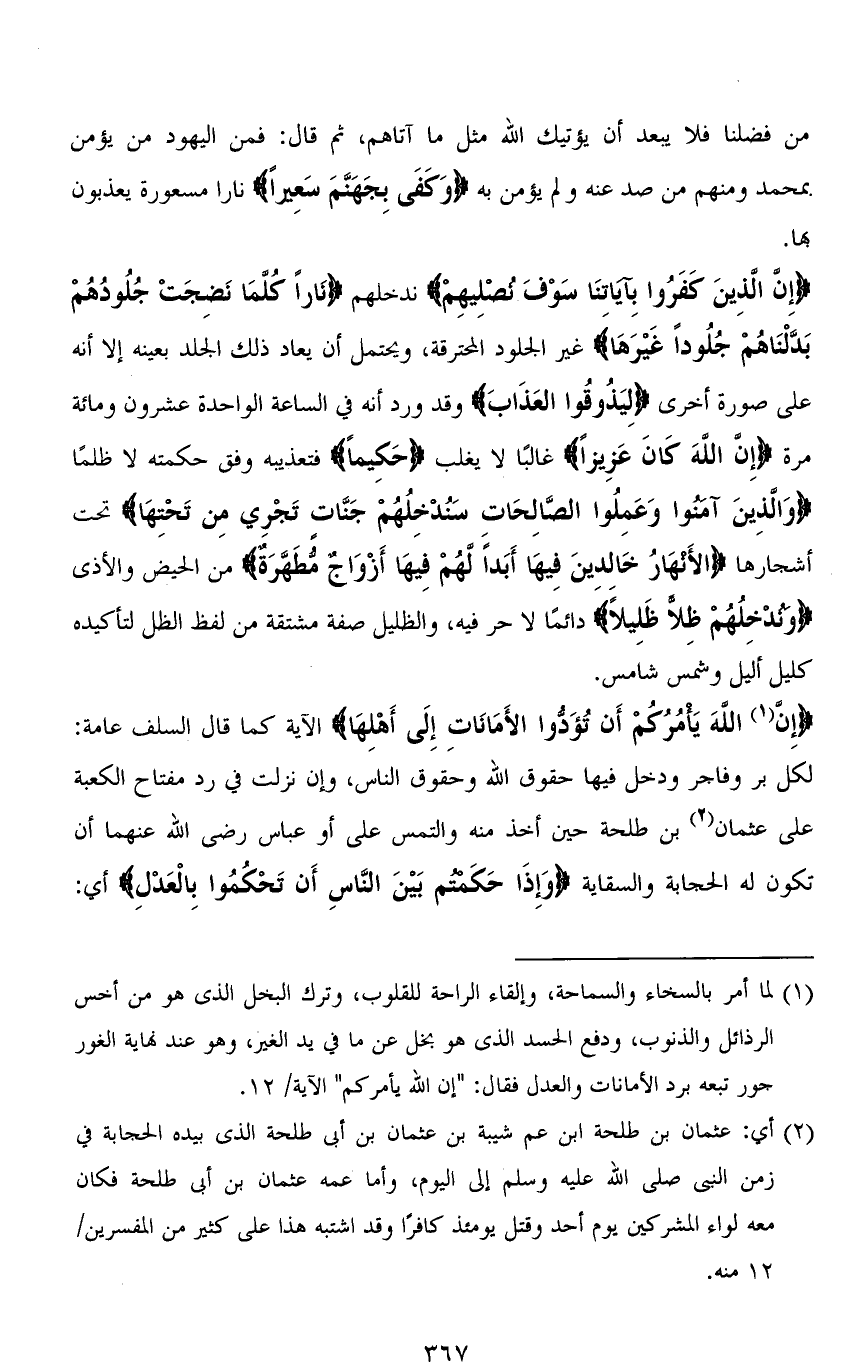 من فضلنا فلا يبعد أن يؤتيك الله مثل ما آتاهم، ثم قال: فمن اليهود من يؤمن
بمحمد ومنهم من صد عنه ولم يؤمن به ﴿وَكَفَى بِجَهَنَّمَ سَعِيراً﴾ نارا مسعورة يعذبون
بها.
﴿إِنَّ الَّذِينَ كَفَرُوا بِآيَاتِنَا سَوْفَ نُصْلِيهِمْ﴾ ندخلهم ﴿نَاراً كُلَّمَا نَضِجَتْ جُلُودُهُمْ
بَدَّلْنَاهُمْ جُلُوداً غَيْرَهَا﴾ غير الجلود المحترقة، ويحتمل أن يعاد ذلك الجلد بعينه إلا أنه
على صورة أخرى ﴿لِيَذُوقُوا العَذَابَ﴾ وقد ورد أنه في الساعة الواحدة عشرون ومائة
مرة ﴿إِنَّ اللَّهَ كَانَ عَزِيزاً﴾ غالبًا لا يغلب ﴿حَكِيماً﴾ فتعذيبه وفق حكمته لا ظلمًا
﴿وَالَّذِينَ آمَنُوا وَعَمِلُوا الصَّالِحَاتِ سَنُدْخِلُهُمْ جَنَّاتٍ تَجْرِي مِن تَحْتِهَا﴾ تحت
أشجارها ﴿الأَنْهَارُ خَالِدِينَ فِيهَا أَبَداً لَّهُمْ فِيهَا أَزْوَاجٌ مُّطَهَّرَةٌ﴾ من الحيض والأذى
﴿وَنُدْخِلُهُمْ ظِلاًّ ظَلِيلاً﴾ دائمًا لا حر فيه، والظليل صفة مشتقة من لفظ الظل لتأكيده
كليل أليل وشمس شامس.
﴿إِنَّ(١) اللَّهَ يَأْمُرُكُمْ أَن تُؤَدُّوا الأَمَانَاتِ إِلَى أَهْلِهَا﴾ الآية كما قال السلف عامة:
لكل بر وفاجر ودخل فيها حقوق الله وحقوق الناس، وإن نزلت في رد مفتاح الكعبة
على عثمان(٢) بن طلحة حين أخذ منه والتمس على أو عباس رضى الله عنهما أن
تكون له الحجابة والسقاية ﴿وَإِذَا حَكَمْتُم بَيْنَ النَّاسِ أَن تَحْكُمُوا بِالْعَدْلِ﴾ أي:
(١) لما أمر بالسخاء والسماحة، وإلقاء الراحة للقلوب، وترك البخل الذى هو من أخس
الرذائل والذنوب، ودفع الحسد الذى هو بخل عن ما في يد الغير، وهو عند نهاية الغور
حور تبعه برد الأمانات والعدل فقال: "إن الله يأمركم" الآية/ ١٢.
(٢) أي: عثمان بن طلحة ابن عم شيبة بن عثمان بن أبى طلحة الذى بيده الحجابة في
زمن النبى صلى الله عليه وسلم إلى اليوم، وأما عمه عثمان بن أبى طلحة فكان
معه لواء المشركين يوم أحد وقتل يومئذ كافرًا وقد اشتبه هذا على كثير من المفسرين/
١٢ منه.
٣٦٧